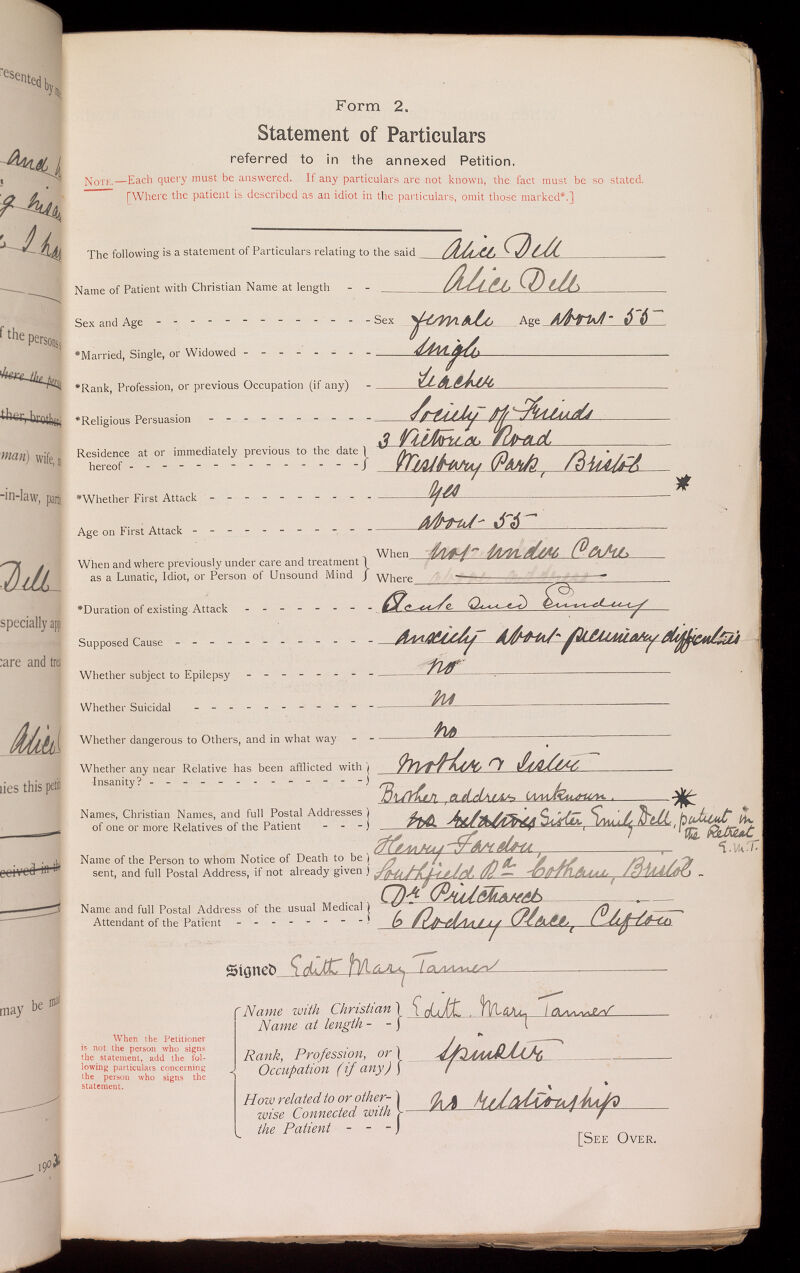 resented by
And
g his
I ha
f the persons
where the pers
ther, brother
man) wife,
-in-law,
Dell
specially
care and
Alice
ies this
eceived in th
may be
190
Form 2.
Statement of Particulars
referred to in the annexed Petition.
NOTE.—Each query must be answered. If any particulars are not known, the fact must be so stated.
[Where the patient is described as an idiot in the particulars, omit those marked*.]
The following is a statement of Particulars relating to the said Alice Dell
Name of Patient with Christian Name at length - - Alice Dell
Sex and Age - - - - - - - - - - - - - Sex female Age About 55
*Married, Single, or Widowed - - - - - - - - Single
*Rank, Profession, or previous Occupation (if any) - Teacher
*Religious Persuasion - - - - - - - - - - Society of Friends
3 Victoria Road
Residence at or immediately previous to the date
hereof - - - - - - - - - - - - - - Westbury Park, Bristol
*Whether First Attack - - - - - - - - - - Yes *
Age on First Attack - - - - - - - - - - About 55
When and where previously under care and treatment When not under Care
as a Lunatic, Idiot, or Person of Unsound Mind Where
*Duration of existing Attack - - - - - - - - Acute since Sunday
Supposed Cause - - - - - - - - - - - - Anxiety about pecuniary difficulties
Whether subject to Epilepsy - - - - - - - - no
Whether Suicidal - - - - - - - - - - - no
Whether dangerous to Others, and in what way - - no
Whether any near Relative has been afflicted with
Insanity? - - - - - - - - - - - - - Mother & Sister
Brother, address unknown. *
Names, Christian Names, and full Postal Addresses
of one or more Relatives of the Patient - - - no relatives Sister, Emily Dell, patient in
the Retreat
E.M.T.
Henry Fardon,
Name of the Person to whom Notice of Death to be
sent, and full Postal Address, if not already given Southfield Rd Cotham, Bristol.
Dr Pritchard
Name and full Postal Address of the usual Medical
Attendant of the Patient - - - - - - - - 6 Rodney Place, Clifton
Signed Edith Mary Tanner
When the Petitioner
is not the person who signs
the statement, add the fol-
lowing particulars concerning
the person who signs the
statement.
Name with Christian
Name at length - - Edith Mary Tanner
Rank, Profession, or
Occupation (if any) Spinster
How related to or other-
wise Connected with
the Patient - - - no relationship
[SEE OVER.